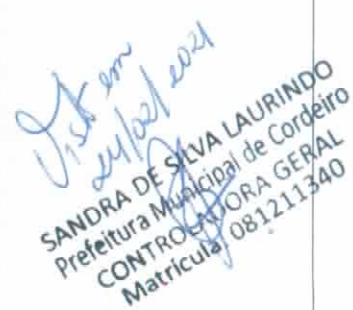 Visto em
24/02/2021
SANDRA DE SILVA LAURINDO
Prefeitura Municipal de Cordeiro
CONTROLADORA GERAL
Matrícula 081211340